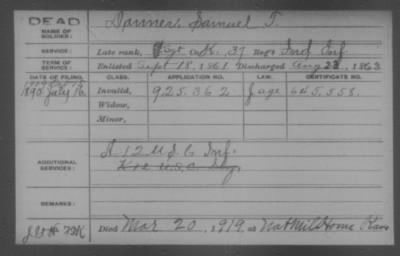 DEAD
NAME OF SOLDIER: Darmer, Samuel T.
SERVICE: Late rank, Co. 37 Reg't Ind Inf
TERM OF SERVICE: Enlisted Sept 18, 1861 Discharged Aug 23, 1863
DATE OF FILING. CLASS. APPLICATION NO. LAW. CERTIFICATE NO.
1890 July 16 Invalid, 925.362 645.558
Widow,
Minor,
A 12 U.S.C. Inf.
ADDITIONAL SERVICES:
REMARKS:
Died Mar 20, 1919, at Nat Mil Home Kans